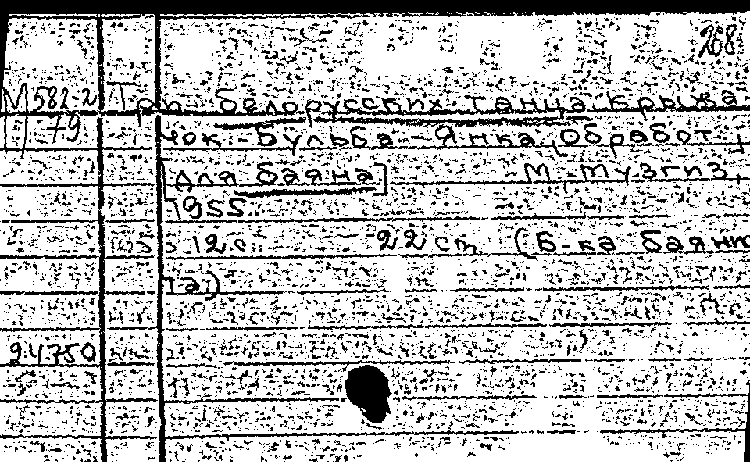 168
М 582-2 Три белорусских танца. Крыжа-
79 чок - Бульба - Янка, Обработ.
[для баяна] М., Музгиз,
1955.
12 с. 22 cm (Б-ка баянис-
та)
94750